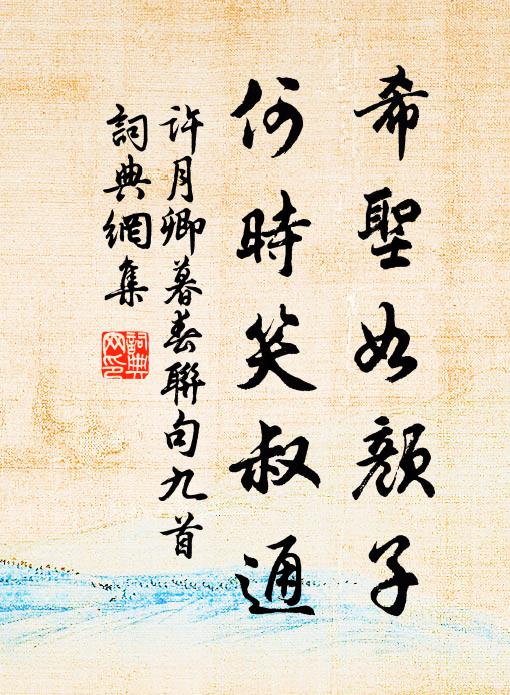 希聖如顏子
何時笑叔通
許月卿暮春聯句九首
詞典網集
詞典
网印